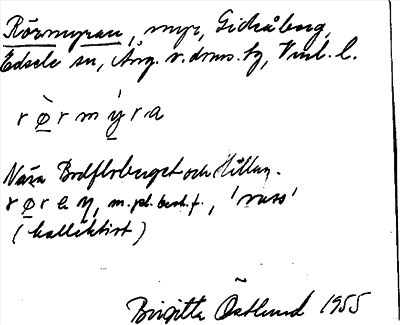 Rörmyran, myr, Gideåberg,
Edsele sn, Ång. v. doms. tg, Vnl. l.
r ø̀ r m ý r a
Nära Brdflberget och
r ø r e ŋ, m. pl. best. f., 'vass'
(kollektivt)
Birgitta Östlund 1955